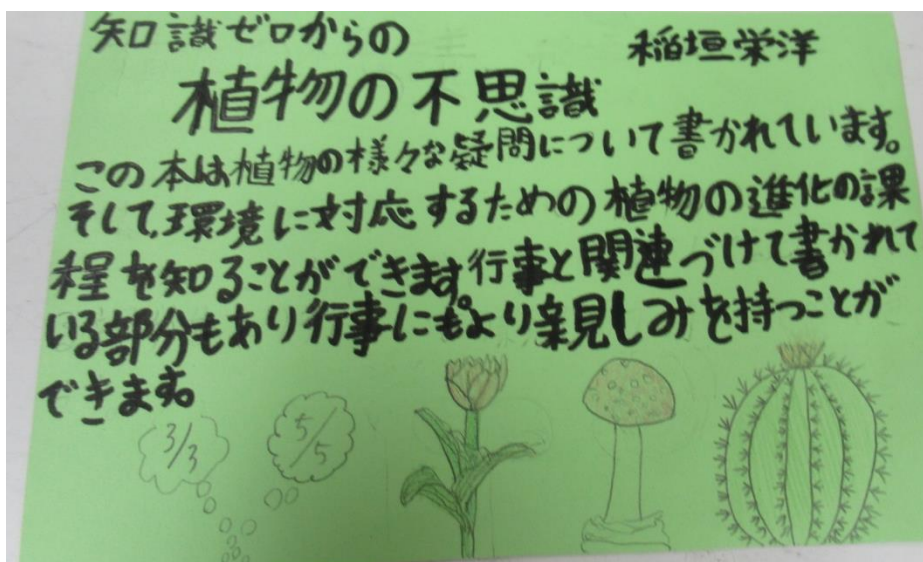 知識ゼロからの
稲垣栄洋
植物の不思識
この本は植物の様々な疑問について書かれています。
そして、環境に対応するための植物の進化の課
程を知ることができます。行事と関連づけて書かれて
いる部分もあり行事にもより親しみを持つことが
できます。
3/3
5/5